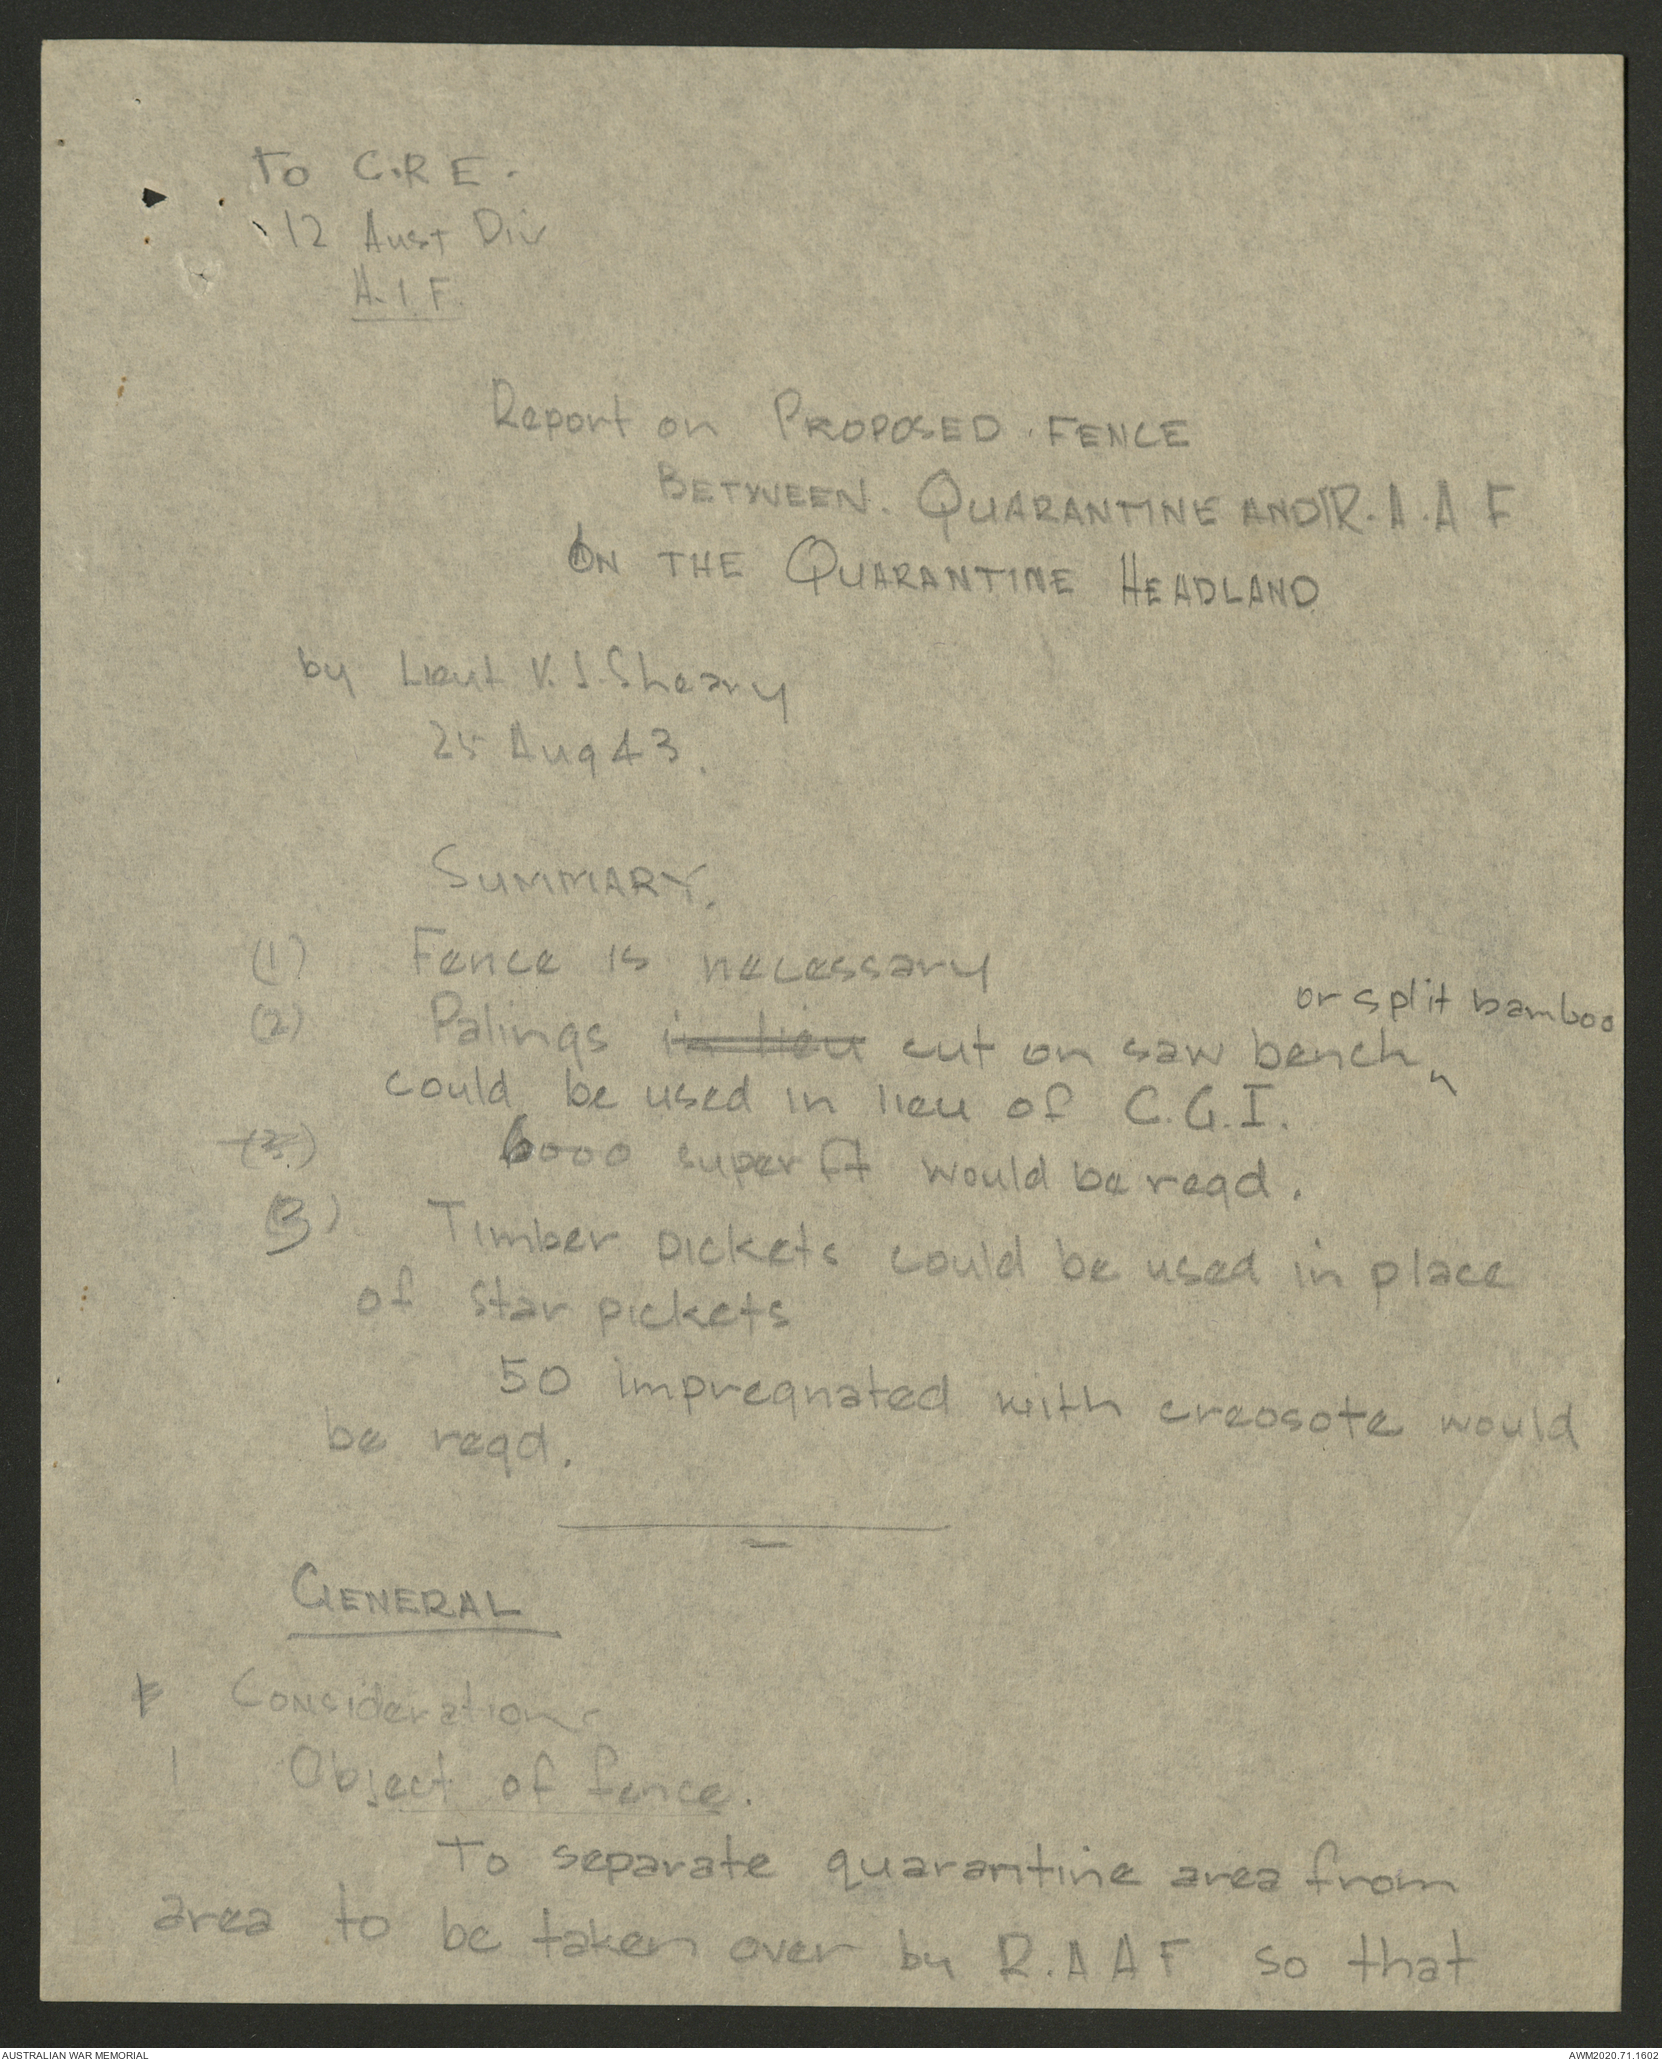 To C.R.E.
12 Aust Div
A.I.F.
Report on PROPOSED FENCE
BETWEEN QUARANTINE AND R.A.A.F
ON THE QUARANTINE HEADLAND
by Lieut V.J. Sheary
25 Aug 43.
SUMMARY.
(1) Fence is necessary
or split bamboo
(2) Palings in lieu cut on saw bench
could be used in lieu of C.G.I.
(3) 6000 super ft would be reqd.
(3) Timber pickets could be used in place
of star pickets
50 impregnated with creosote would
be reqd.
GENERAL
Consideration
1 Object of fence.
To separate quarantine area from
area to be taken over by R.A.A.F so that
AUSTRALIAN WAR MEMORIAL
AWM2020.71.1602